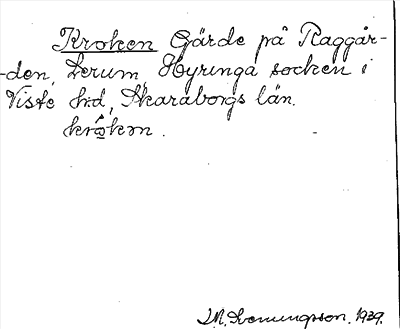 Kroken Gärde på Raggår-
-den, Lerum, Hyringa socken i
Viste hd, Skaraborgs län.
krökẹn.
1939.